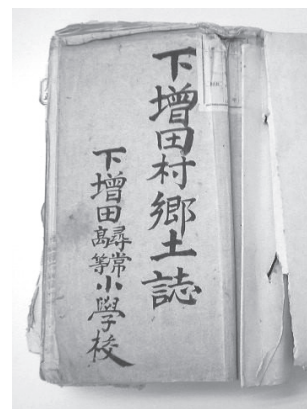 下增田村鄉土誌
下增田尋常高等小學校